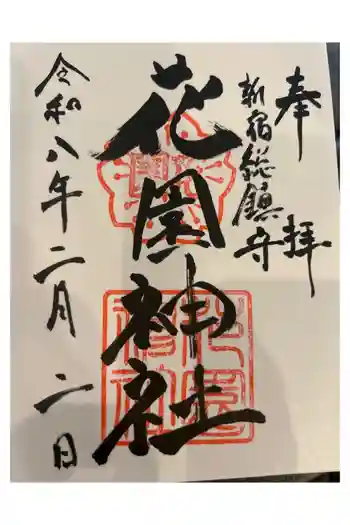 奉拝
新宿総鎮守
花園神社
令和八年二月二日